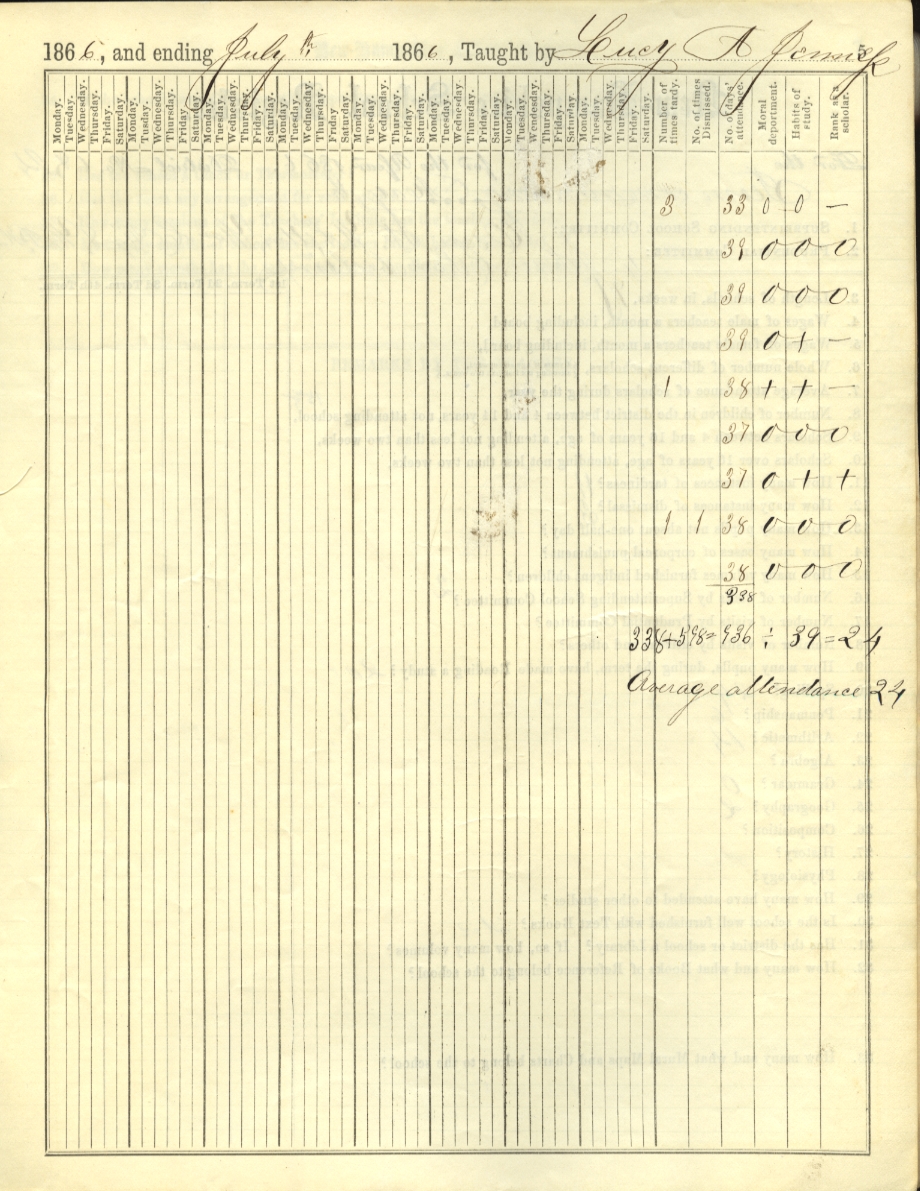 1866, and ending July 1866, Taught by Lucy A 5
Monday. Tuesday. Wednesday. Thursday. Friday. Saturday. Monday. Tusday. Wednesday. Thursday. Friday. Saturday. Monday. Tuesday. Wednesday. Thursday. Friday. Saturday. Monday. Tuesday. Wednesday. Thursday. Friday. Saturday. Monday. Tuesday. Wednesday. Thursday. Friday. Saturday. Monday. Tuesday. Wednesday Thursday. Friday. Saturday. Monday. Tuesday. Wendesday. Thursday. Friday. Saturday. Monday. Tuesday. Wednesday. Thursday. Friday. Saturday. Number of times tardy. No. of times Dismissed. No. of days' attendance. Moral deportment. Habits of study. Rank as a scholar.
3 33 0 0 —
39 0 0 0
39 0 0 0
39 0 + —
1 38 + + —
37 0 0 0
37 0 + +
1 1 38 0 0 0
38 0 0 0
338
338+598=936 ÷ 39=24
Average attendance 24